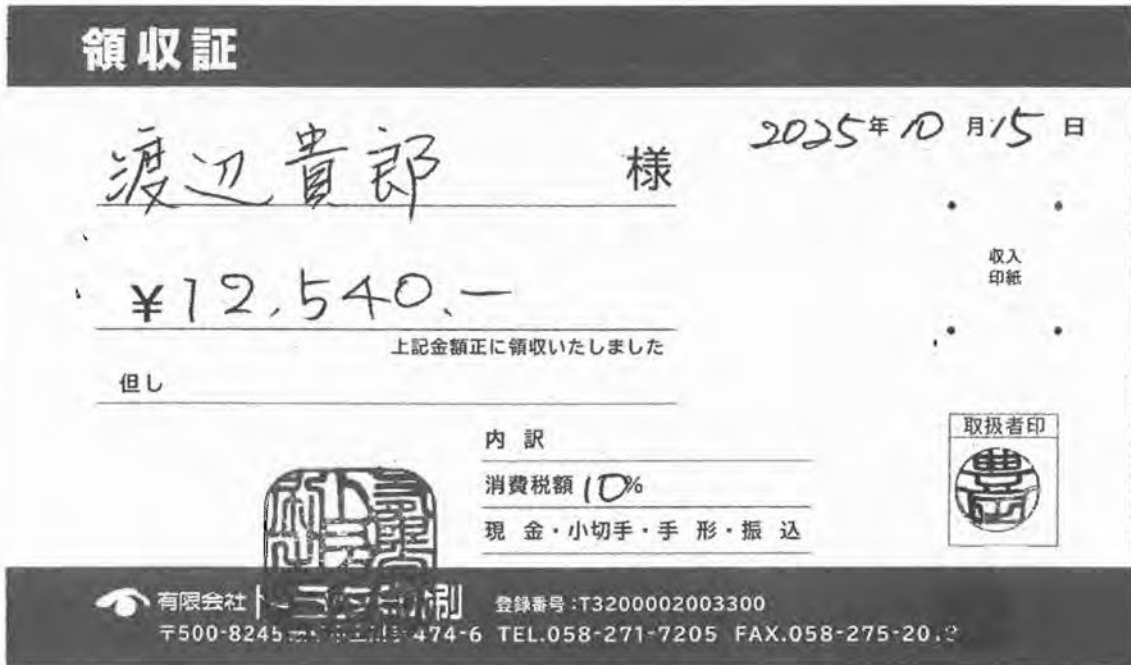 領収証
2025年10月15日
渡辺貴郎 様
収入
印紙
¥12,540.-
上記金額正に領収いたしました
但し
取扱者印
豊岡
内 訳
消費税額 10%
現 金・小切手・手 形・振 込
有限会社 印刷 登録番号:T3200002003300
〒500-8245 474-6 TEL.058-271-7205 FAX.058-275-20